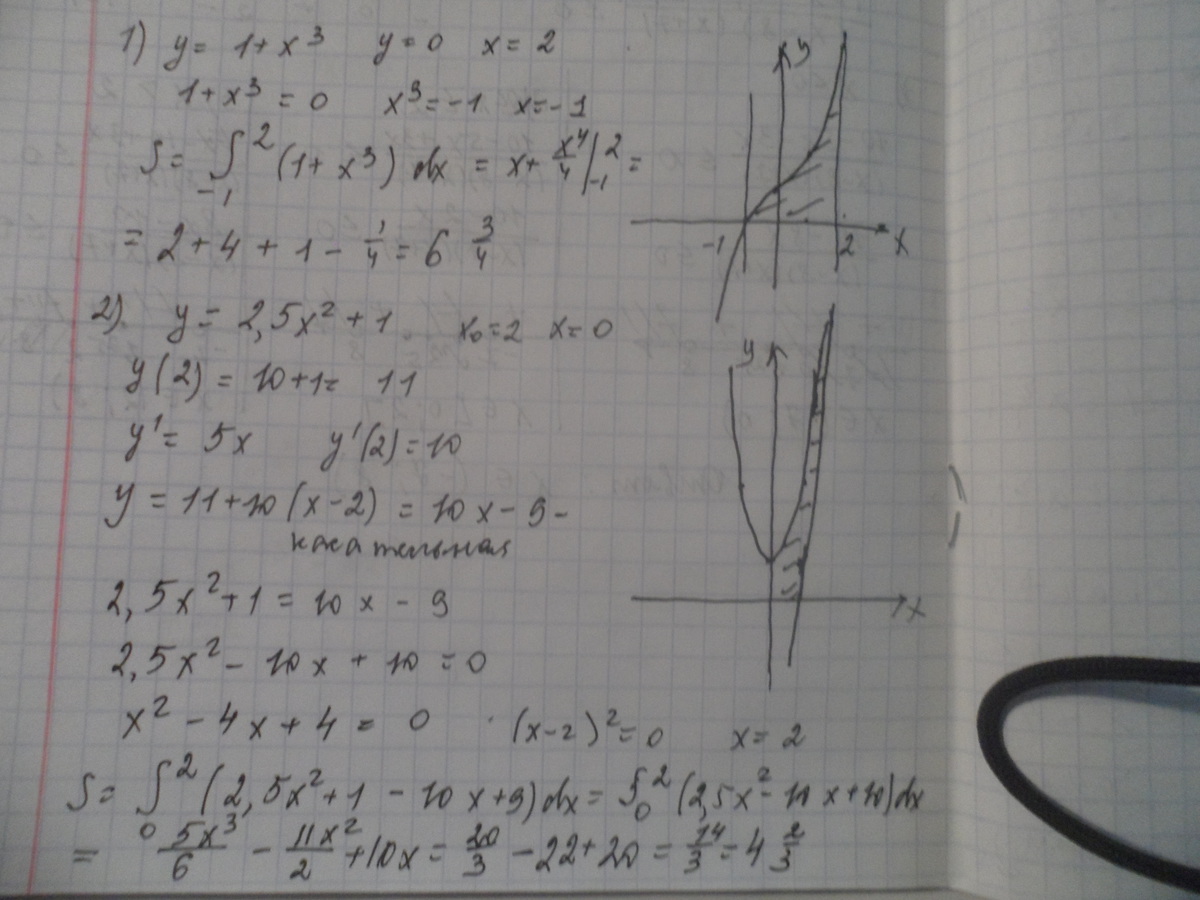 1) y = 1 + x³   y = 0   x = 2
1 + x³ = 0   x³ = -1   x = -1
S = ∫₋₁² (1 + x³) dx = x + x⁴/4 |₋₁² =
= 2 + 4 + 1 - 1/4 = 6 3/4
y
-1   2   x
2) y = 2,5x² + 1   x₀ = 2   x = 0
y(2) = 10 + 1 = 11
y' = 5x   y'(2) = 10
y = 11 + 10(x - 2) = 10x - 9 -
касательная
2,5x² + 1 = 10x - 9
2,5x² - 10x + 10 = 0
x² - 4x + 4 = 0   (x - 2)² = 0   x = 2
S = ∫₀² (2,5x² + 1 - 10x + 9) dx = ∫₀² (2,5x² - 10x + 10) dx
= 5x³/6 - 11x²/2 + 10x = 20/3 - 22 + 20 = 14/3 = 4 2/3
y
x